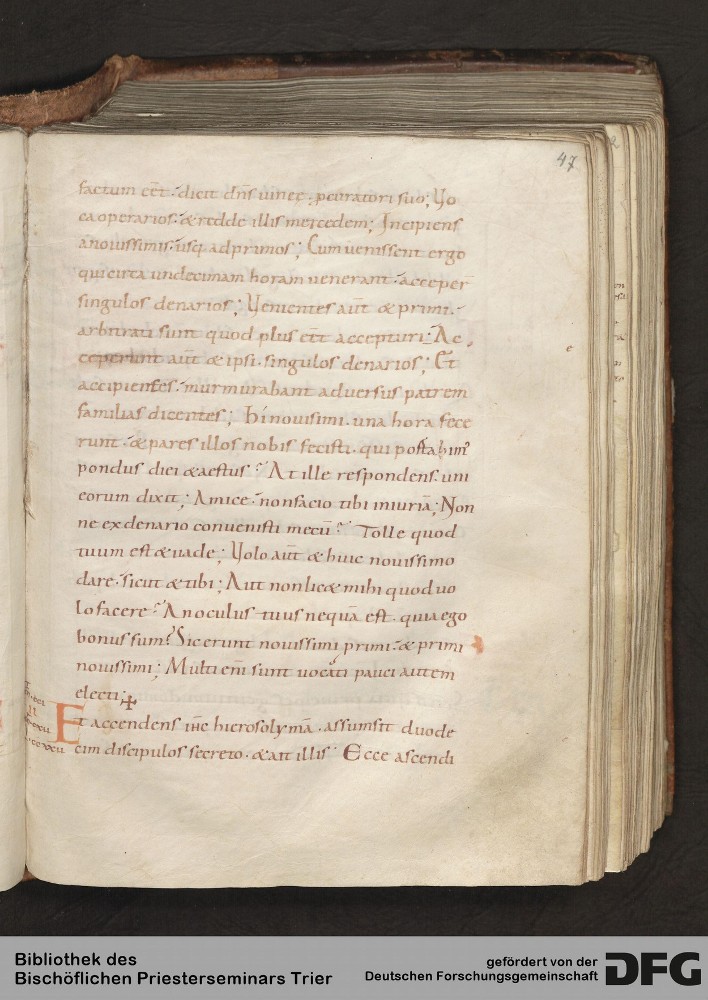 47
factum eēt · dicit dn̄s uineę · pcuratori suo; Uo
ca operarios · & redde illis mercedem; Incipiens
a nouissimis · usq ad primos; Cum uenissent ergo
qui circa undecimam horam uenerant · acceper̄
singulos denarios; Uenientes aūt & primi ·
arbitrati sunt quod plus eēt accepturi; Ac
ceperunt aūt & ipsi · singulos denarios; Et
accipientes · murmurabant aduersus patrem
familias dicentes; hi nouisimi · una hora fece
runt · & pares illos nobis fecisti · qui porta
pondus diei & aestus? At ille respondens · uni
eorum dixit; Amice · non facio tibi iniuriā; Non
ne ex denario conuenisti mecū? Tolle quod
tuum est & uade; Uolo aūt & huic nouissimo
dare · sicut & tibi; Aut non lic& mihi quod uo
lo facere? An oculus tuus nequā est · quia ego
bonus sum? Sic erunt nouissimi primi · & primi
nouissimi; Multi enī sunt uocati pauci autem
electi;
Et accendens ih̄c hierosolymā · assumsit duode
cim discipulos secreto · & ait illis Ecce ascendi
Bibliothek des
Bischöflichen Priesterseminars Trier
gefördert von der
Deutschen Forschungsgemeinschaft
DFG